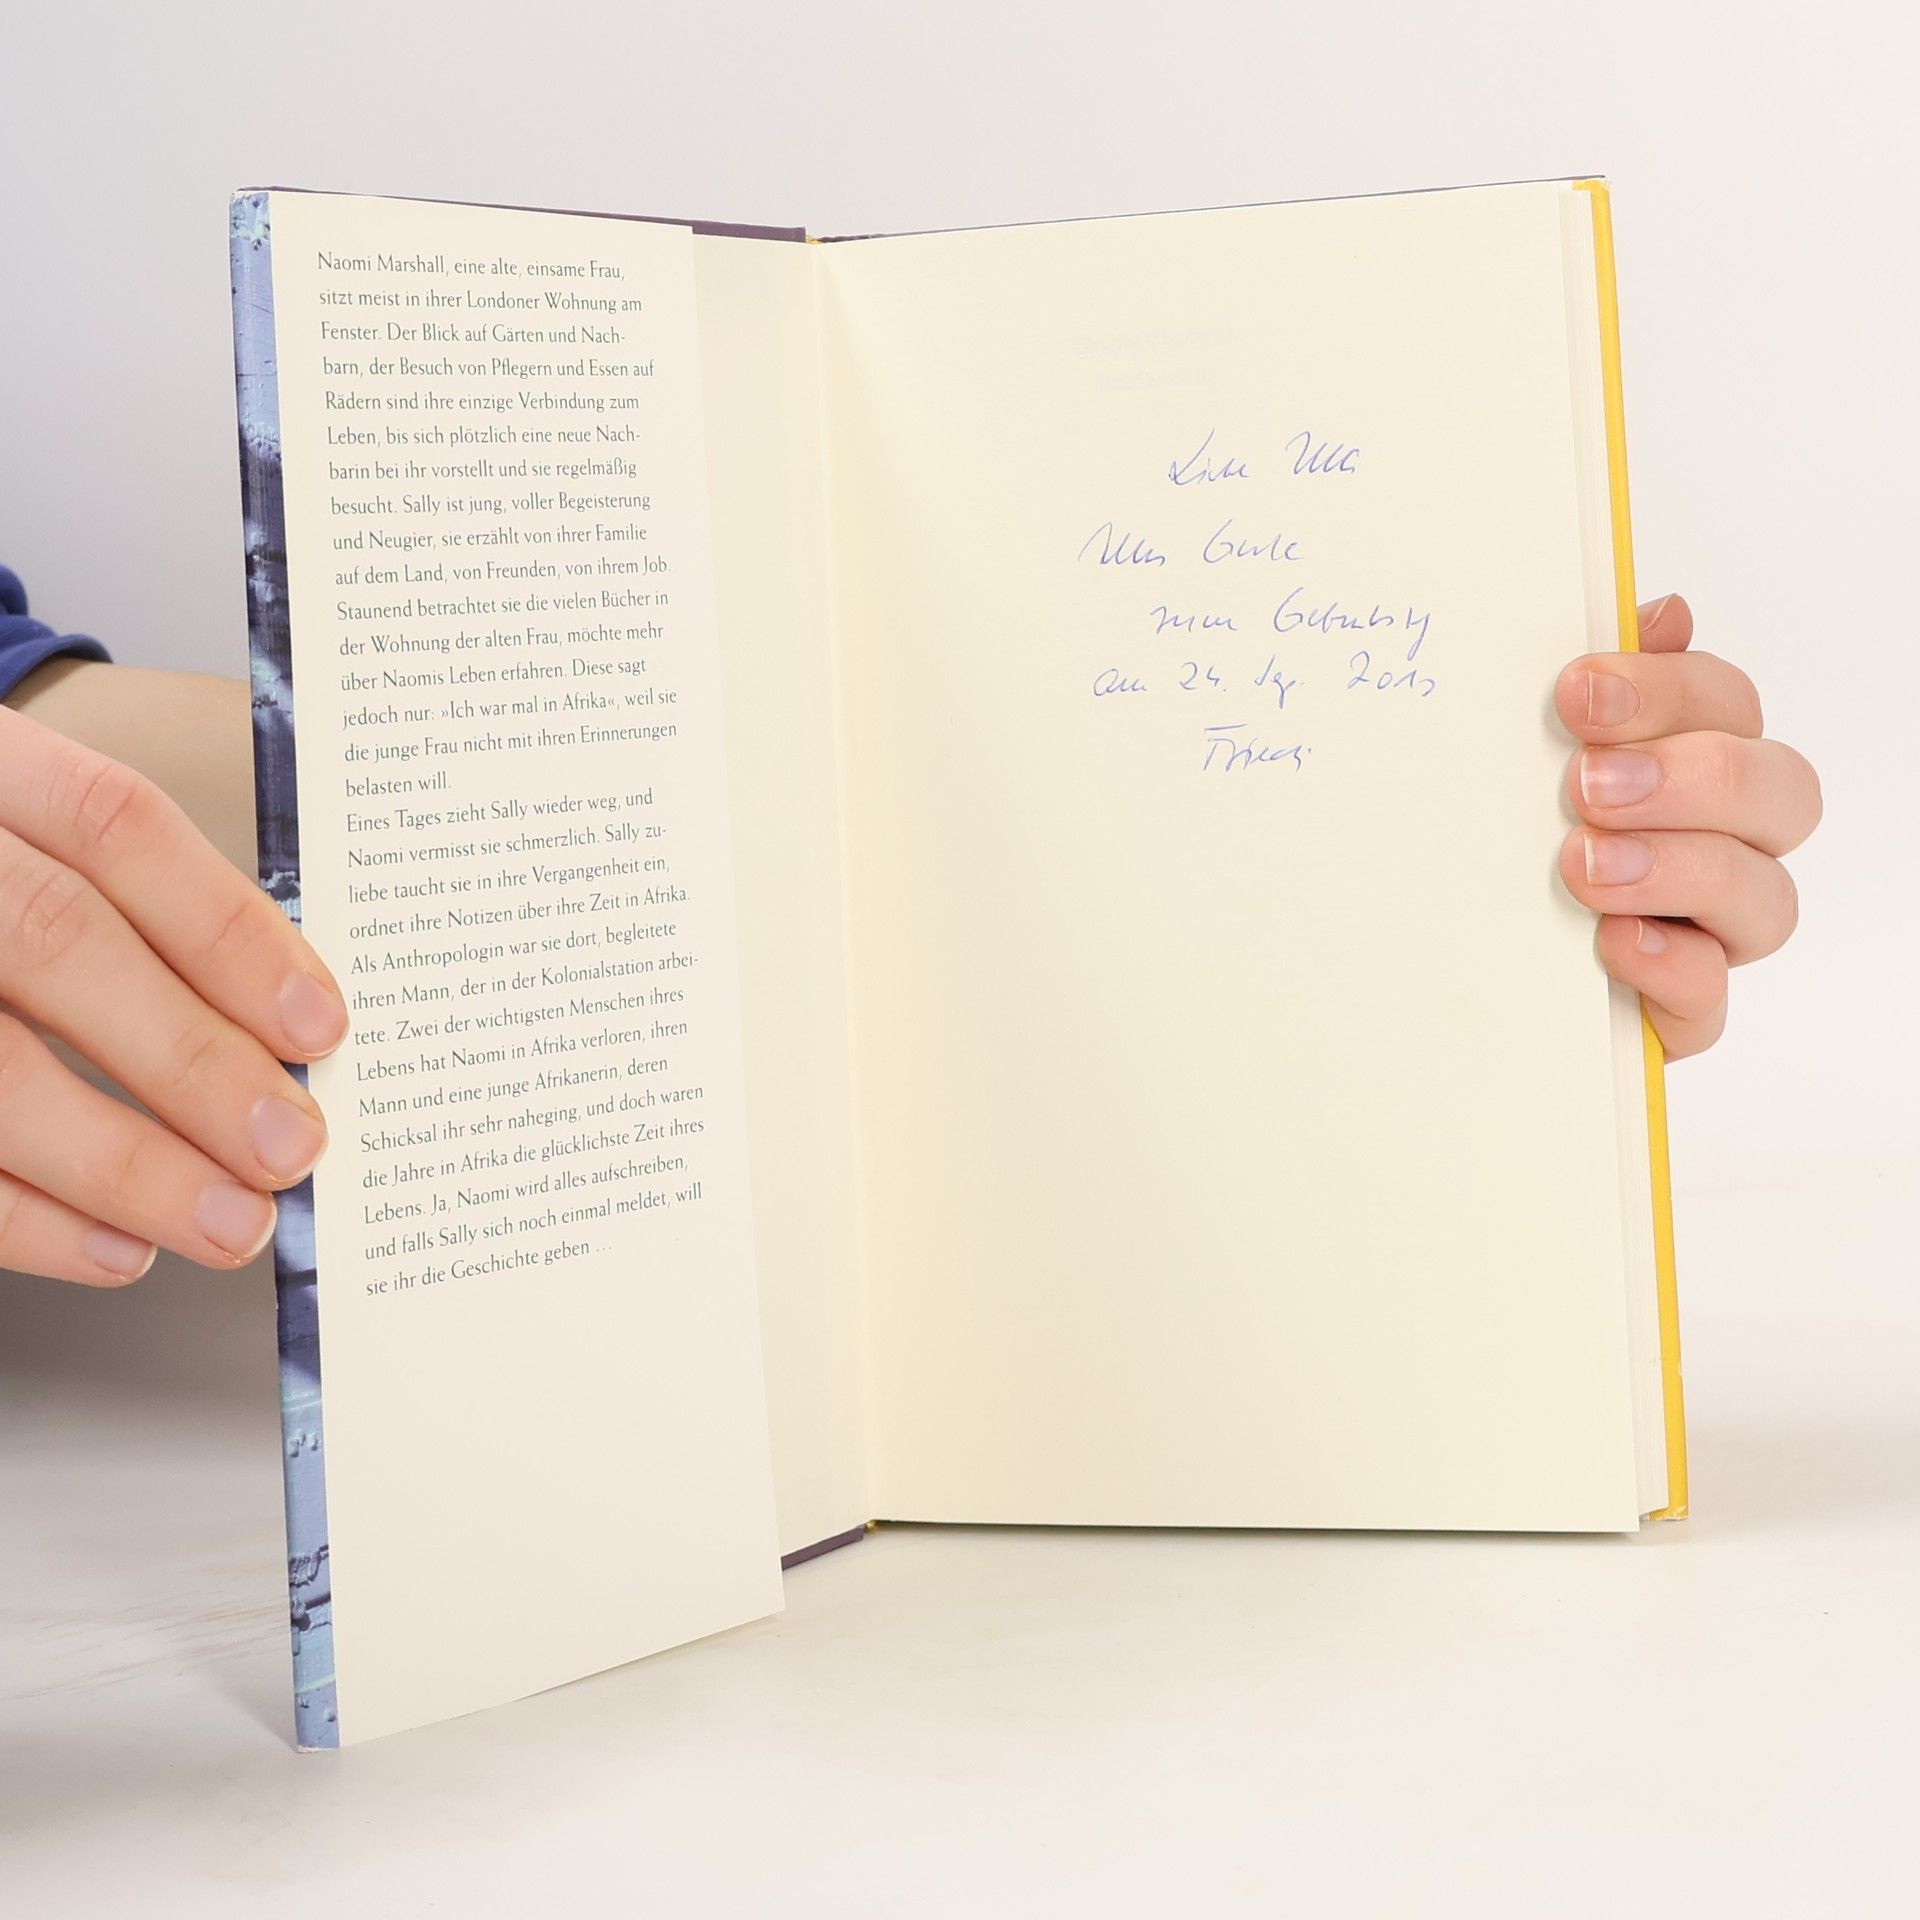 Naomi Marshall, eine alte, einsame Frau,
sitzt meist in ihrer Londoner Wohnung am
Fenster. Der Blick auf Gärten und Nach-
barn, der Besuch von Pflegern und Essen auf
Rädern sind ihre einzige Verbindung zum
Leben, bis sich plötzlich eine neue Nach-
barin bei ihr vorstellt und sie regelmäßig
besucht. Sally ist jung, voller Begeisterung
und Neugier, sie erzählt von ihrer Familie
auf dem Land, von Freunden, von ihrem Job.
Staunend betrachtet sie die vielen Bücher in
der Wohnung der alten Frau, möchte mehr
über Naomis Leben erfahren. Diese sagt
jedoch nur: »Ich war mal in Afrika«, weil sie
die junge Frau nicht mit ihren Erinnerungen
belasten will.
Eines Tages zieht Sally wieder weg, und
Naomi vermisst sie schmerzlich. Sally zu-
liebe taucht sie in ihre Vergangenheit ein,
ordnet ihre Notizen über ihre Zeit in Afrika.
Als Anthropologin war sie dort, begleitete
ihren Mann, der in der Kolonialstation arbei-
tete. Zwei der wichtigsten Menschen ihres
Lebens hat Naomi in Afrika verloren, ihren
Mann und eine junge Afrikanerin, deren
Schicksal ihr sehr naheging, und doch waren
die Jahre in Afrika die glücklichste Zeit ihres
Lebens. Ja, Naomi wird alles aufschreiben,
und falls Sally sich noch einmal meldet, will
sie ihr die Geschichte geben ...
Liebe Ulla
Alles Gute
zum Geburtstag
am 24. Sep.